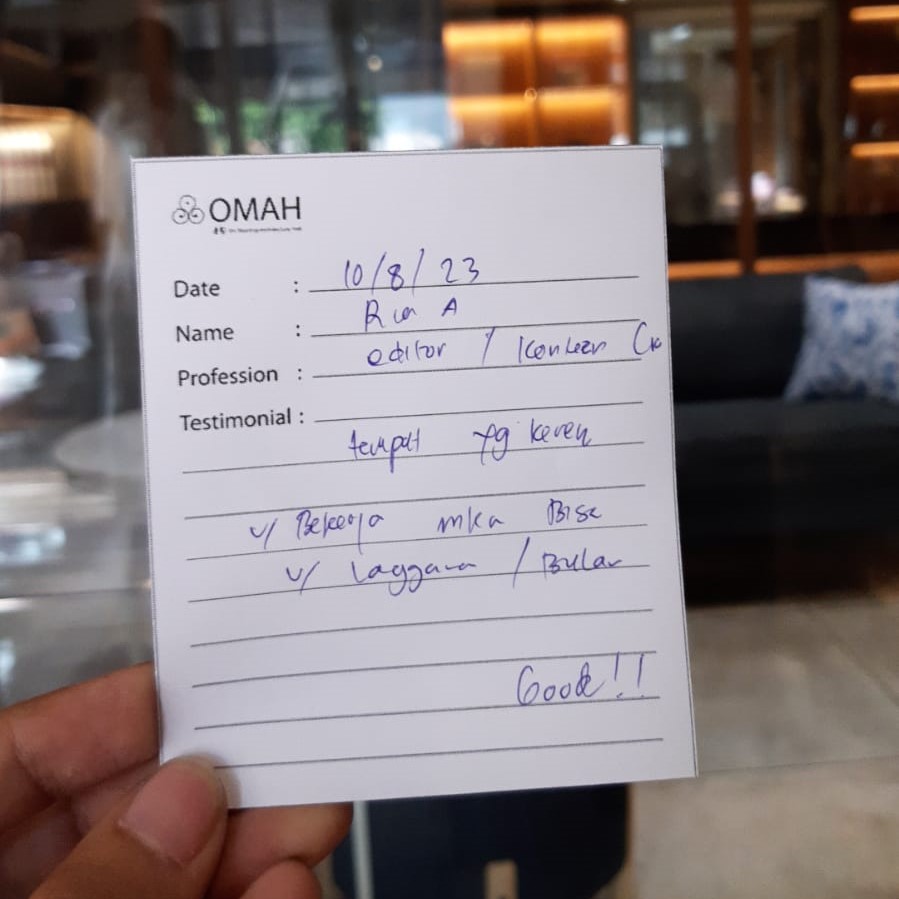 OMAH
Date : 10/8/23
Name : R A
Profession : editor / Konten
Testimonial :
tempat yg keren
u/ Bekerja mka Bisa
u/ /
Good!!